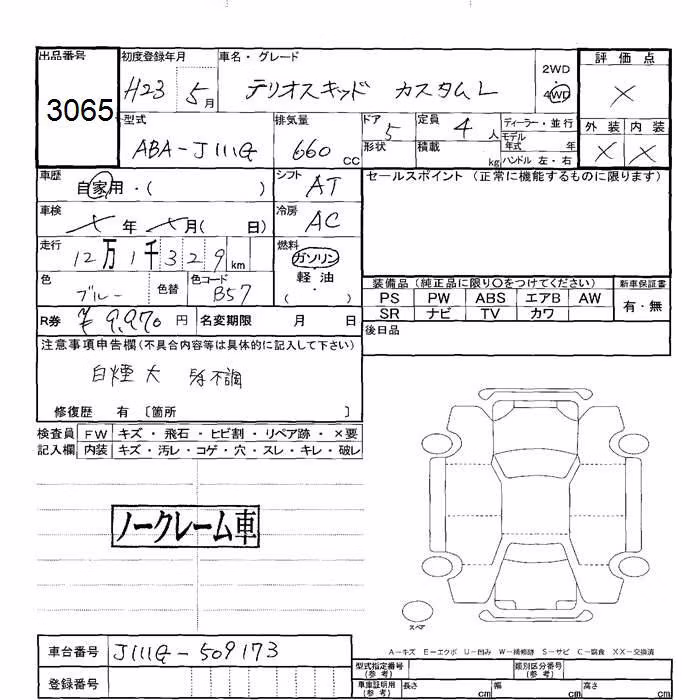 出品番号 初度登録年月 車名・グレード 2WD 評価点
3065 H23 5月 テリオスキッド カスタムL 4WD ×
型式 排気量 ドア 定員 ディーラー・並行 外装 内装
ABA-J111G 660cc 5 4人 モデル年式 年 × ×
形状 積載 kg ハンドル 左・右
車歴 シフト セールスポイント (正常に機能するものに限ります)
自家用・( ) AT
車検 冷房
×年 ×月( 日) AC
走行 燃料
12万1千329km ガソリン
色 色替 色コード 軽油
ブルー B57 ・( )
装備品 (純正品に限り○をつけてください) 新車保証書
PS PW ABS エアB AW 有・無
SR ナビ TV カワ
R券 ¥9,970円 名変期限 月 日
後日品
注意事項申告欄(不具合内容等は具体的に記入して下さい)
白煙大 不調
修復歴 有 〔箇所 〕
検査員 FW キズ・飛石・ヒビ割・リペア跡・×要
記入欄 内装 キズ・汚レ・コゲ・穴・スレ・キレ・破レ
ノークレーム車
スペア
A-キズ E-エクボ U-凹み W-補修跡 S-サビ C-腐食 XX-交換済
車台番号 J111G-509173
型式指定番号(参考) 類別区分番号(参考)
登録番号
車庫証明用(参考) 長さ cm 幅 cm 高さ cm